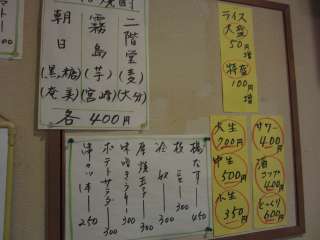 二階堂(麦)(大分)
霧島(芋)(宮崎)
朝日(黒糖)(奄美)
各400円
ライス
大盛
50円増
特盛
100円増
大生
700円
中生
500円
小生
350円
サワー
400円
酒
コップ
400円
とっくり
600円
揚なす 450
枝豆 300
冷奴 300
厚焼玉子 300
味噌きうり 300
ポテトサラダ 300
串カツ1本 250